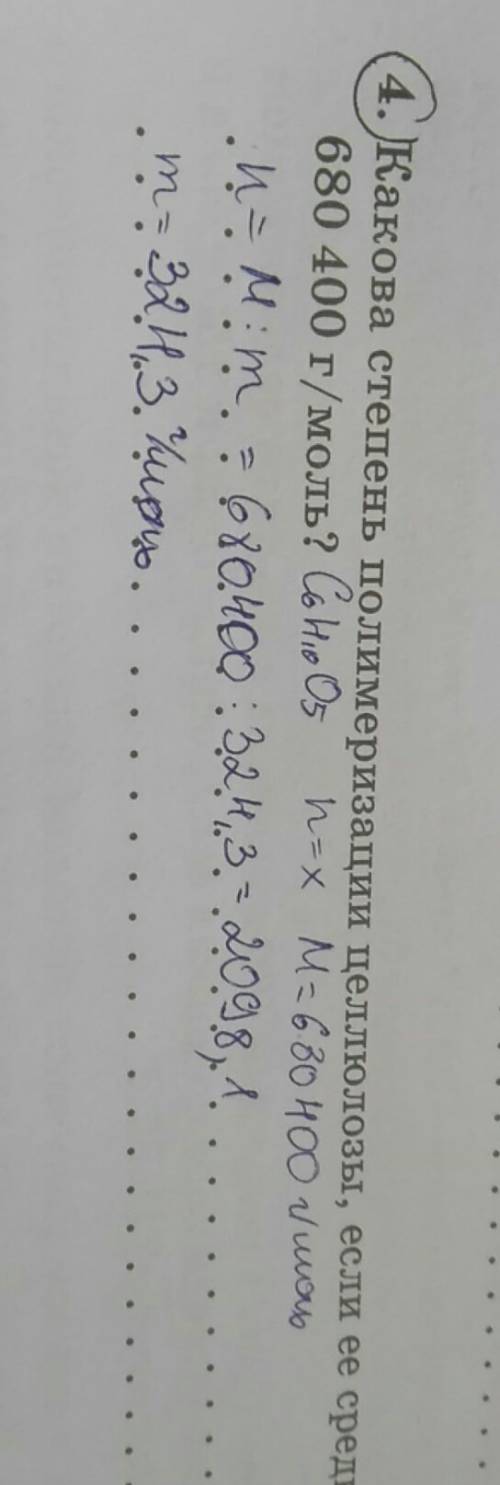 4. Какова степень полимеризации целлюлозы, если ее
680 400 г/моль? C6H10O5 n=x M=680400 г/моль
n=M:m=680400:324,3=2098,1
m=324,3 г/моль